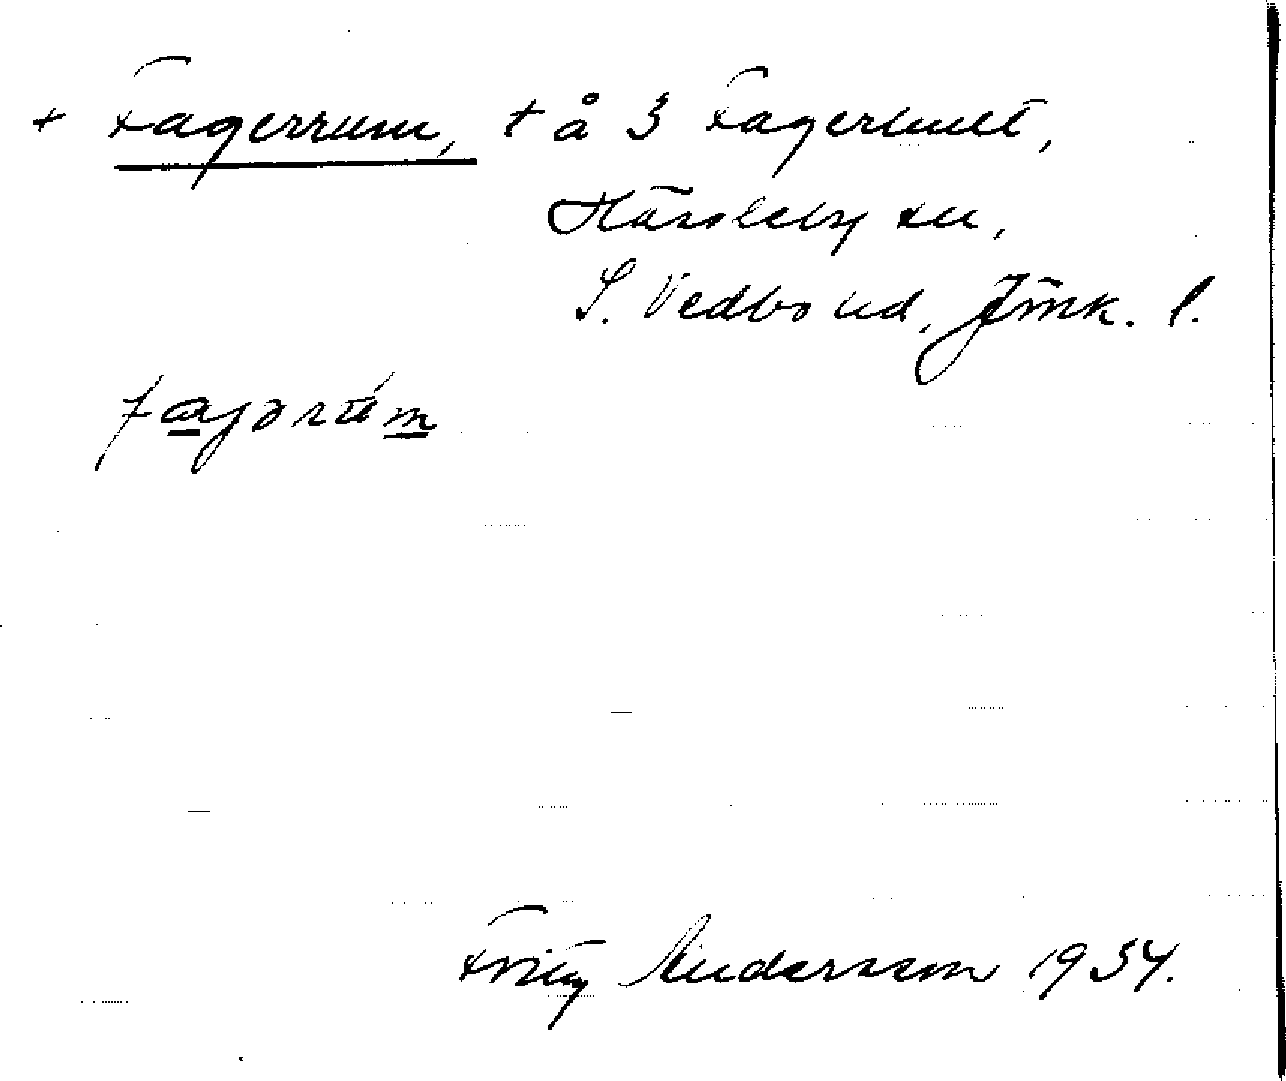 + Fagerrum, t å 3 Fagerhult,
Hässleby sn,
S. Vedbo hd, Jönk. l.
fajərúm
Fritz Andersson 1954.